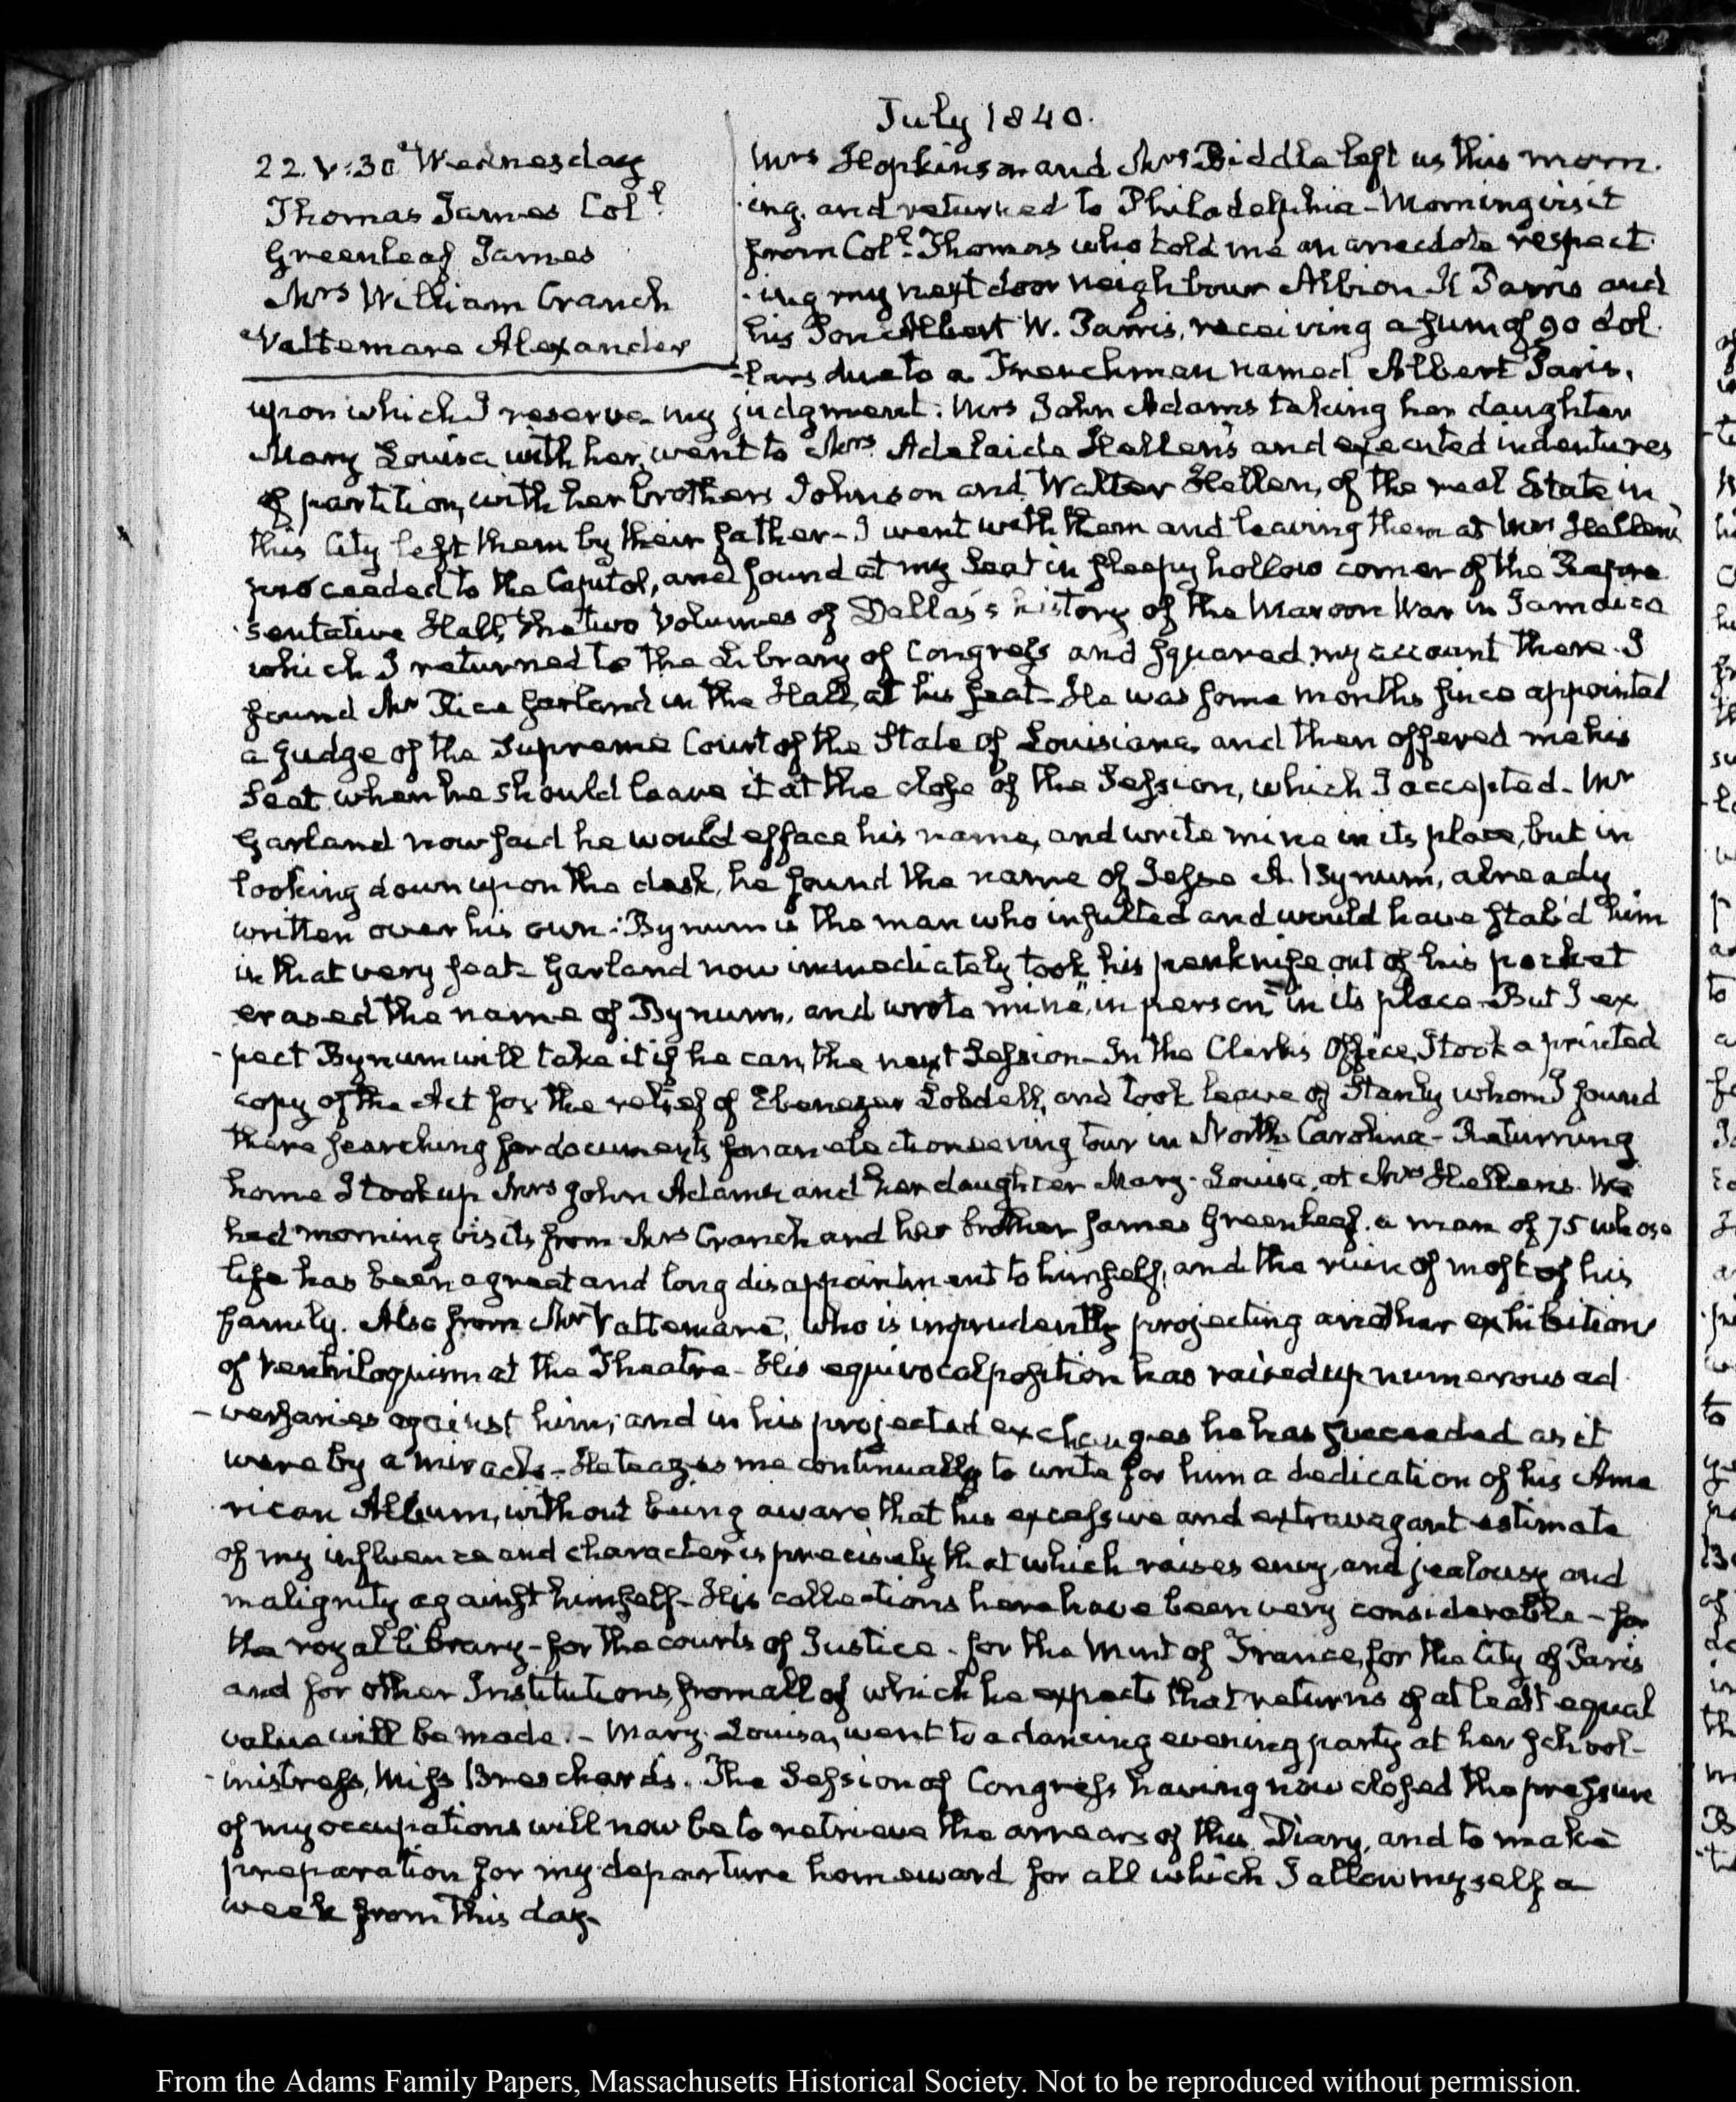 July 1840.
22. V:30. Wednesday
Thomas James Col.l
Greenleaf James
Mrs William Cranch
Vattemare Alexander
Mrs Hopkinson and Mrs Biddle left us this morn-
-ing, and returned to Philadelphia - Morning visit
from Coll. Thomas who told me an anecdote respect-
-ing my next door neighbour Albion K Parris and
his Son Albert W. Parris, receiving a sum of 90 dol-
-lars due to a Frenchman named Albert Paris,
upon which I reserve my judgment. Mrs John Adams taking her daughter
Mary Louisa with her, went to Mrs Adelaide Hellen's and executed indentures
of partition, with her brothers Johnson and Walter Hellen, of the real Estate in
this City left them by their father - I went with them and leaving them at Mrs Hellen's
proceeded to the Capitol, and found at my Seat in sleepy hollow corner of the Repre-
-sentative Hall, the two Volumes of Dallas's history of the Maroon War in Jamaica
which I returned to the Library of Congress and squared my account there. I
found Mr Rice Garland in the Hall, at his seat - He was some months since appointed
a Judge of the Supreme Court of the State of Louisiana, and then offered me his
Seat, when he should leave it at the close of the Session, which I accepted - Mr
Garland now said he would efface his name, and write mine in its place, but in
looking down upon the desk, he found the name of Jesse A. Bynum, already
written over his own. Bynum is the man who insulted and would have stab'd him
in that very seat - Garland now immediately took his penknife out of his pocket
erased the name of Bynum, and wrote mine, "in person" in its place - But I ex-
-pect Bynum will take it if he can, the next Session - In the Clerk's Office, I took a printed
copy of the Act for the relief of Ebenezer Lobdell, and took leave of Stanly whom I found
there searching for documents for an electioneering tour in North Carolina - Returning
home I took up Mrs John Adams and her daughter Mary-Louisa, at Mrs Hellen's. We
had morning visits from Mrs Cranch and her brother James Greenleaf, a man of 75 whose
life has been a great and long disappointment to himself, and the ruin of most of his
family. Also from Mr Vattemare, who is imprudently projecting another exhibition
of Ventriloquism at the Theatre - His equivocal position has raised up numerous ad-
-versaries against him, and in his projected exchanges he has succeeded as it
were by a miracle - He teazes me continually to write for him a dedication of his Ame-
-rican Album, without being aware that his excessive and extravagant estimate
of my influence and character is precisely that which raises envy, and jealousy and
malignity against himself - His collections here have been very considerable - for
the royal library - for the courts of Justice - for the Mint of France, for the City of Paris
and for other Institutions, from all of which he expects that returns of at least equal
value will be made. - Mary-Louisa, went to a dancing evening party at her school-
-mistress, Miss Breschard's. The Session of Congress having now closed the pressure
of my occupations will now be to retrieve the arrears of this Diary, and to make
preparation for my departure homeward for all which I allow myself a
week from this day -
From the Adams Family Papers, Massachusetts Historical Society. Not to be reproduced without permission.